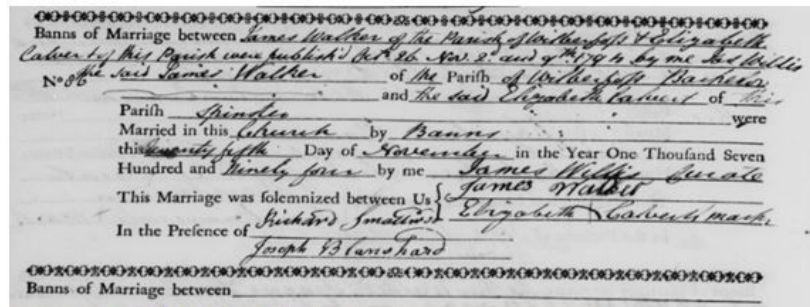 Banns of Marriage between James Walker of the Parish of Wilberfoss & Elizabeth
Calvert of this Parish were publish'd Octr. 26 Nov. 2d and 9th 1794 by me Jas Willis
No 86 the said James Walker of the Parish of Wilberfoss Bachelor
and the said Elizabeth Calvert of this
Parish Spinster were
Married in this Church by Banns
this twenty fifth Day of November in the Year One Thousand Seven
Hundred and Ninety four by me James Willis Curate
This Marriage was solemnized between Us James Walker
Elizabeth + Calverts mark
In the Presence of Richard
Joseph Blanshard
Banns of Marriage between